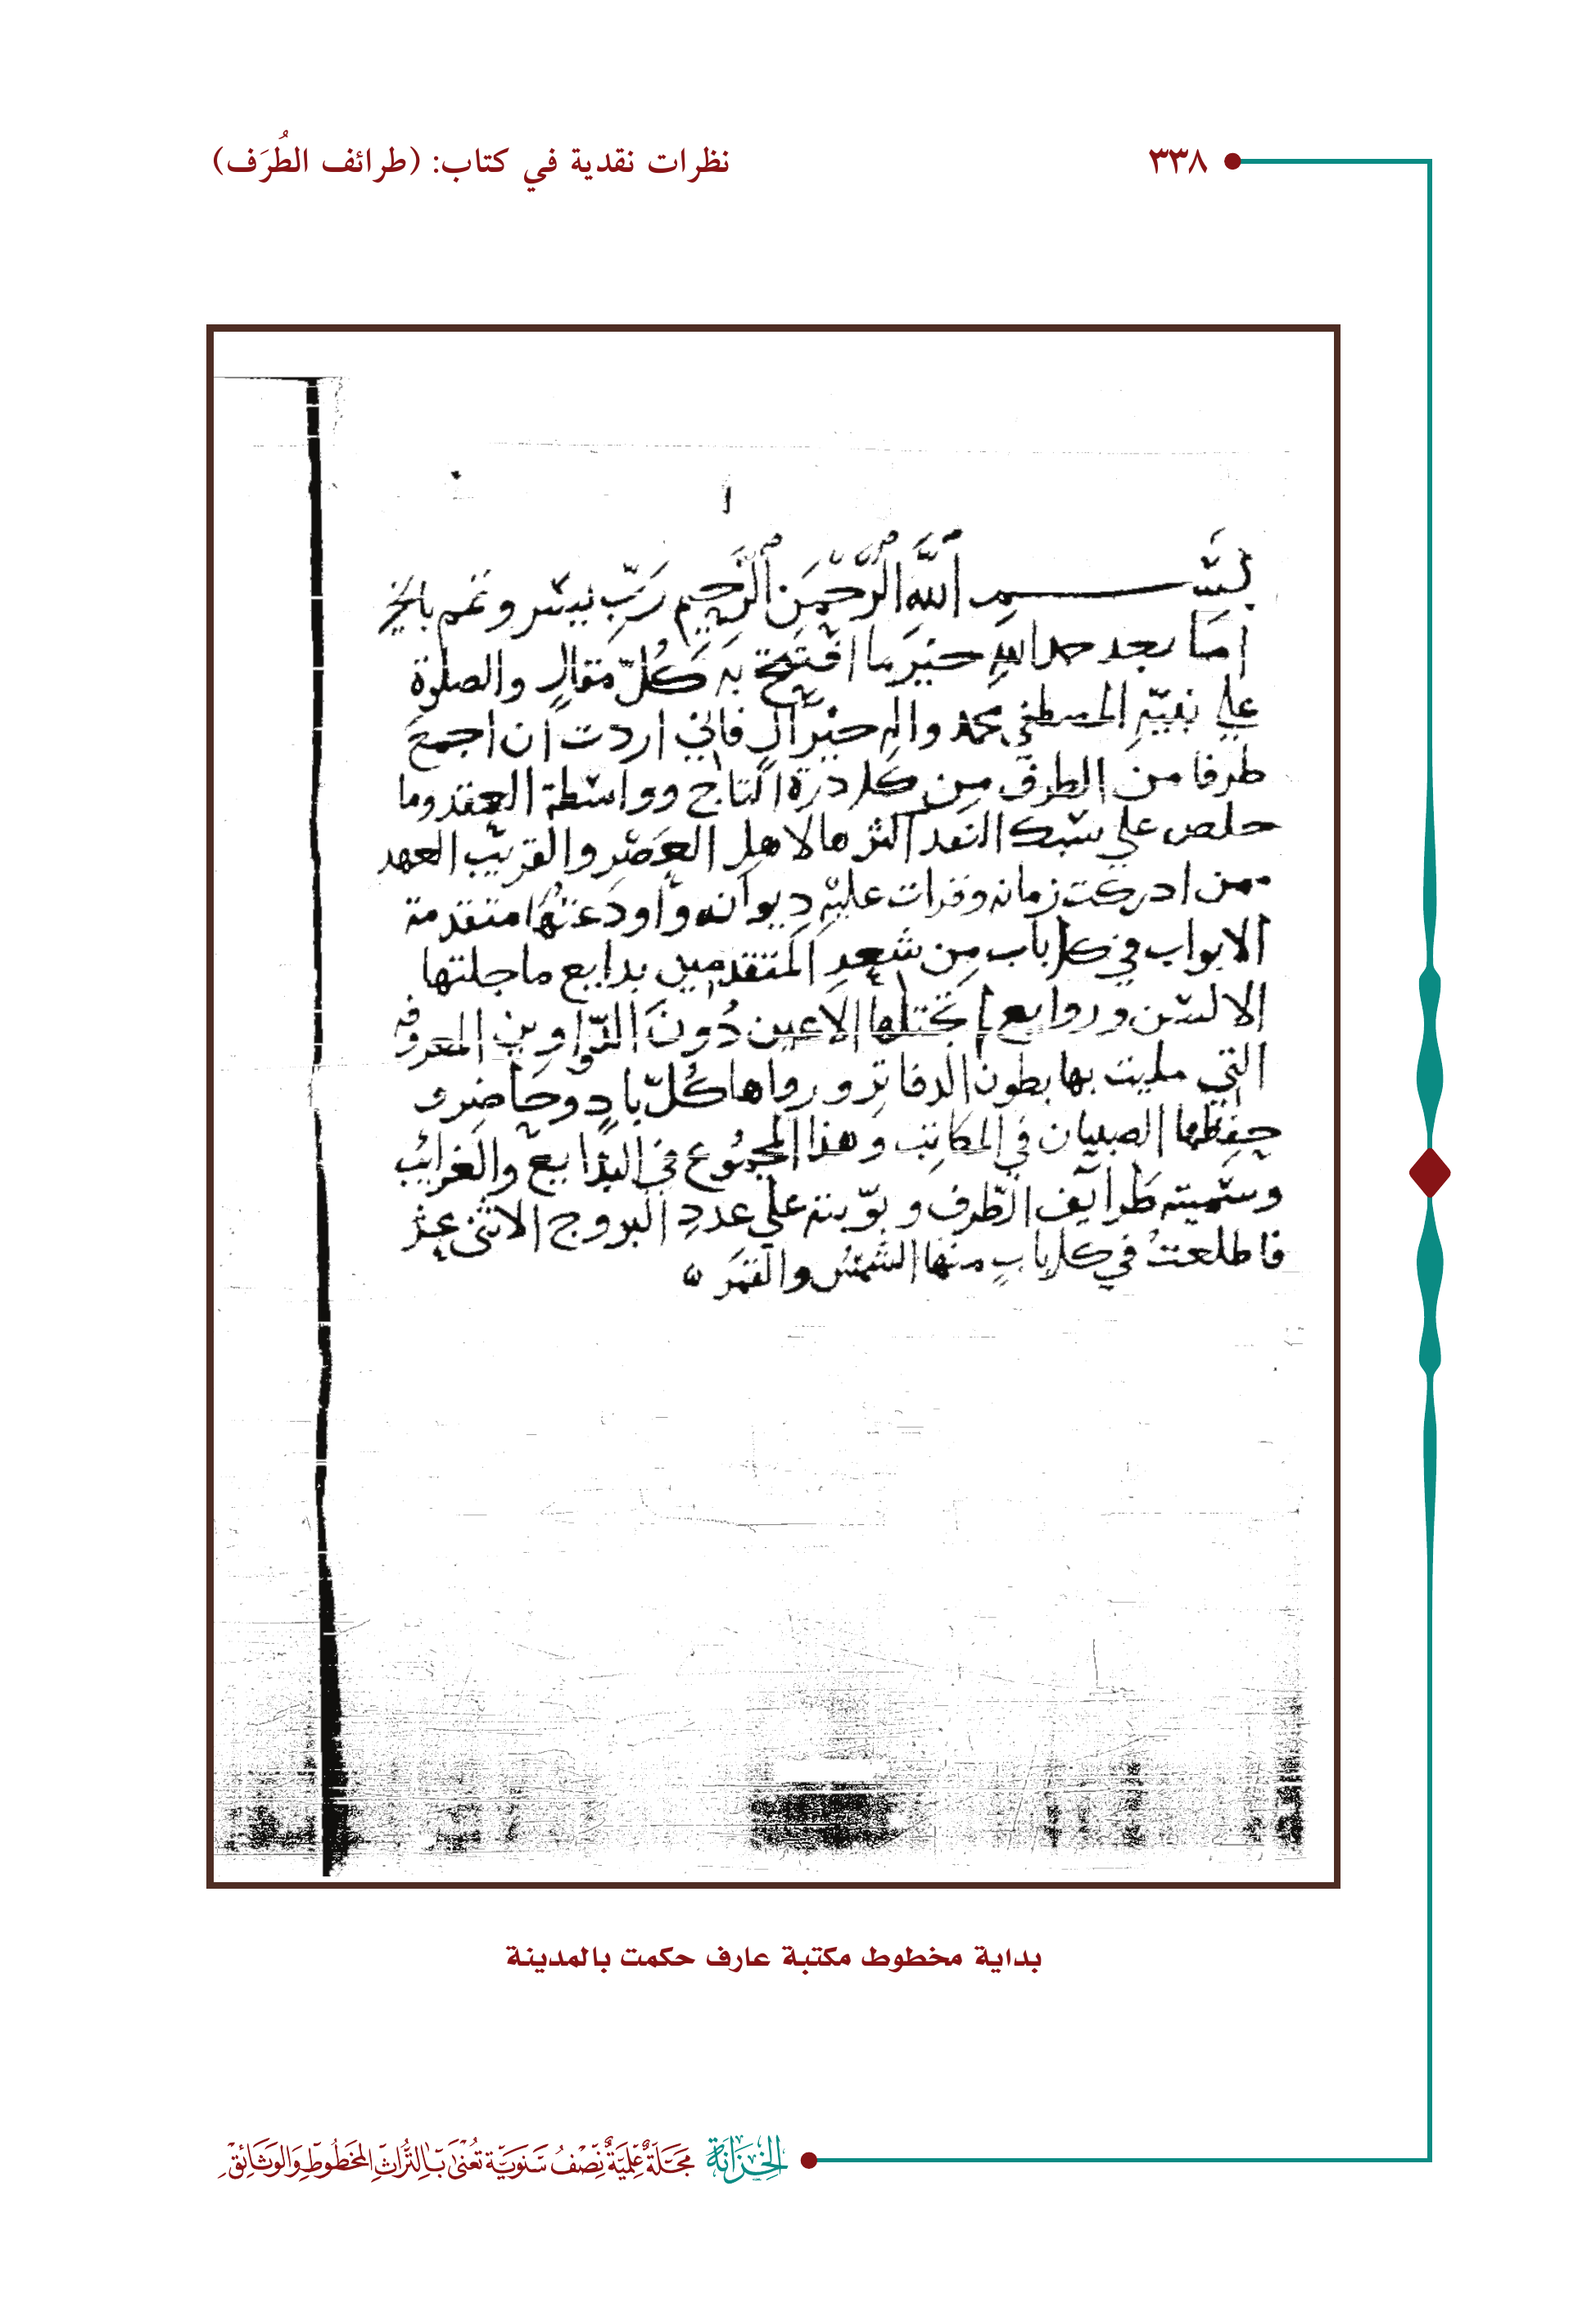 ٣٣٨
نظرات نقدية في كتاب: (طرائف الطُرَف)
بســـم اللّٰه الرَّحْمٰن الرَّحيم رَبِّ يسّر وتمم بالخير
امّا بعد حمد اللهِ خير ما افتتح به كُلّ مقالٍ والصلوة
علي نبيّهِ المصطفي محمد واله خير آلٍ فاني اردت ان اجمع
طرفا من الطرف من كل درة التاج وواسطة العقد وما
خلص علي سبك النقد اكثرها لاهل العصر والقريب العهد
ممن ادركت زمانه وقرات عليه ديوانه واودعتها متقدمة
الابواب في كل باب من شعر المتقدمين بدايع ما جلتها
الالسن وروايع لم تجتلها الاعين دُونَ الدّواوين المعروفه
التي مليت بها بطون الدفاتر ورواها كُلّ بادٍ وحاضر و
حفظها الصبيان في المكاتب وهذا المجموع في البدايع والغرايب
وسمّيته طرايف الطّرف وبوّبته علي عددِ البروج الاثني عشر
فاطلعتُ في كل بابٍ منها الشمسُ والقمر ه
بداية مخطوط مكتبة عارف حكمت بالمدينة
الخِزَانَةُ
مَجَلَّةٌ عِلْمِيَّةٌ نِصْفُ سَنَوِيَّة تُعْنَىٰ بِالتُّرَاثِ المَخْطُوطِ وَالوَثَائِق